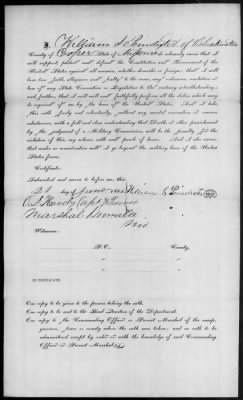 I, William S Pendleton of Blackwater
County of Cooper State of Missouri do solemnly swear that I
will support, protect and defend the Constitution and Government of the
United States against all enemies, whether domestic or foreign; that I will
bear true faith, allegiance and loyalty to the same, any ordinance, resolution or law
of any State Convention or Legislature to the contrary notwithstanding;
and further, that I will well and faithfully perform all the duties which may
be required of me by the laws of the United States. And I take
this oath freely and voluntarily, without any mental reservation or evasion
whatsoever, with a full and clear understanding that Death, or other punishment
by the judgment of a Military Commission, will be the penalty for the
violation of this my solemn oath and parole of honor. And I also swear
that under no consideration will I go beyond the military lines of the United
States forces.
Certificate:
Subscribed and sworn to before me, this
21 day of June William S Pendleton
Marshal
Witnesses:
P.O. County,
IN TRIPLICATE
One copy to be given to the person taking the oath.
One copy to be sent to the Head Quarters of the Department.
One copy to the Commanding Officer or Provost Marshal of the
town or county where the oath was taken; and no oath to be
administered except by order or with the knowledge of such Commanding
Officer or Provost Marshal.